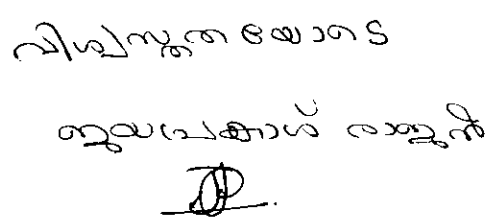 വിശ്വസ്തതയോടെ
ജയപ്രകാശ് രാജൻ